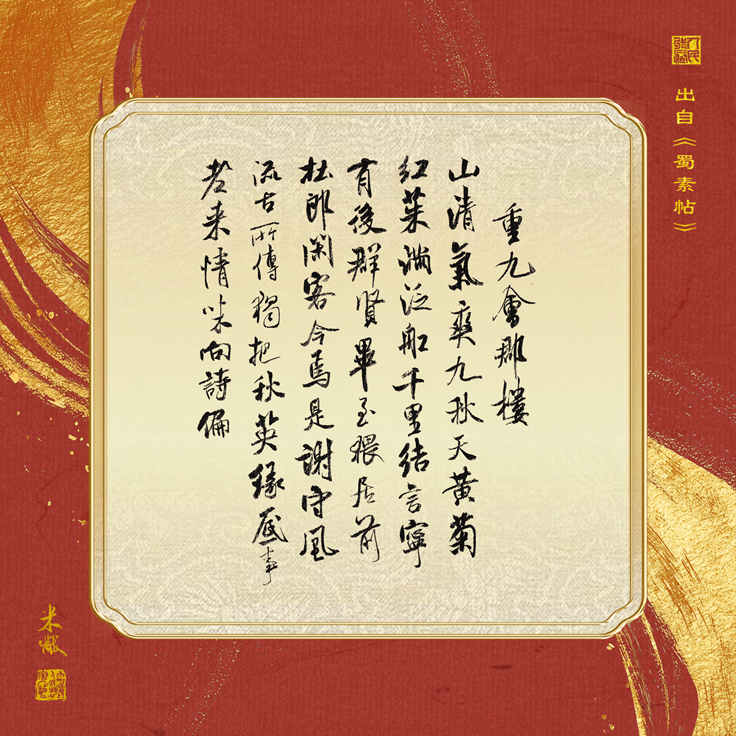 出自《蜀素帖》
重九會郡樓
山清氣爽九秋天黃菊
紅茱滿泛船千里結言寧
有後群賢畢至猥居前
杜郎閑客今焉是謝守風
流古所傳獨把秋英緣底事
老來情味向詩偏
米黻